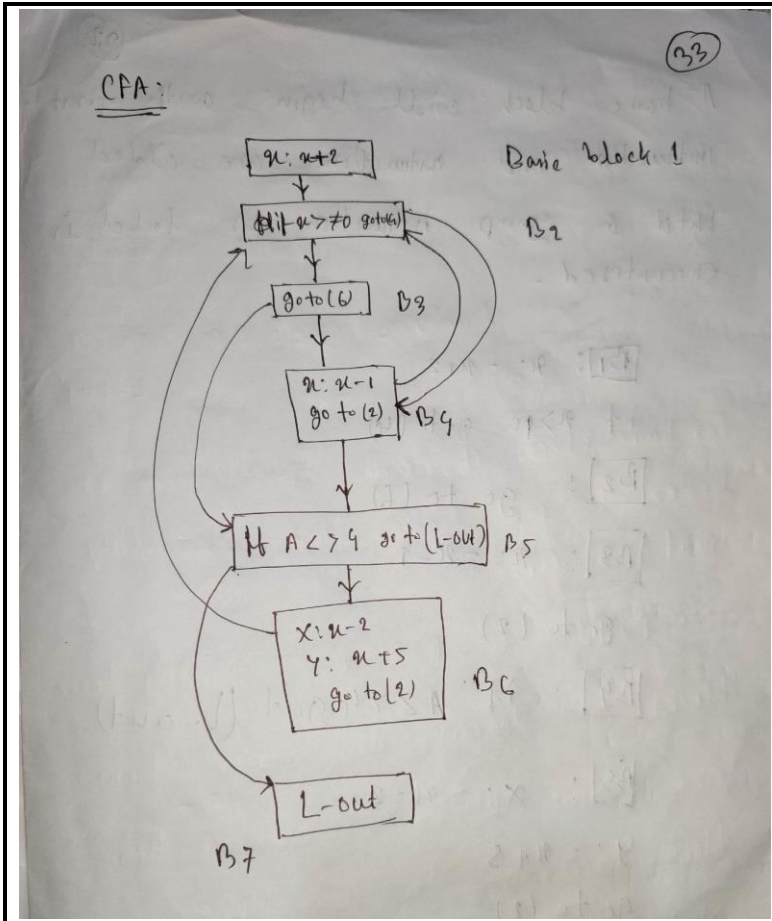 33
CFA:
x: x+2
Basic block 1
if x > ≠0 goto(4)
B2
goto(6)
B3
x: x-1
go to (2)
B4
If A < > 4 go to (L-out)
B5
X: x-2
Y: x+5
go to (2)
B6
L-out
B7